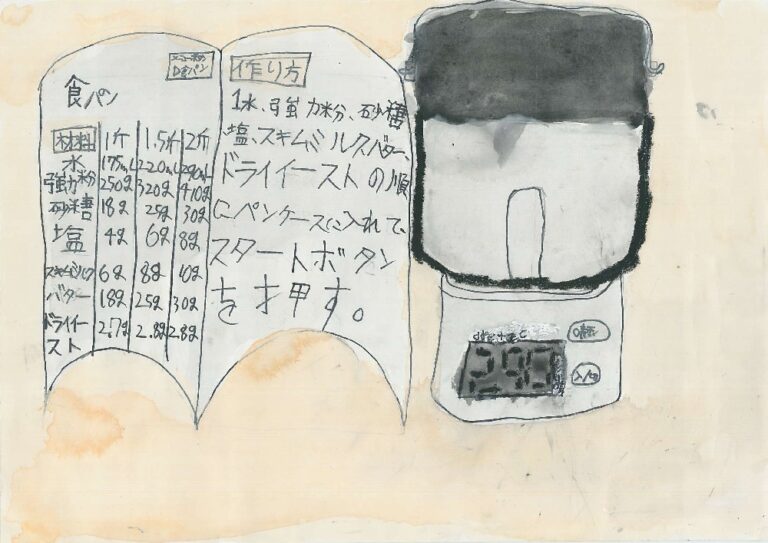 食パン
材料 1斤 1.5斤 2斤
水 175mL 220mL 290mL
強力粉 250g 320g 410g
砂糖 18g 25g 30g
塩 4g 6g 8g
スキムミルク 6g 8g 10g
バター 18g 25g 30g
ドライイースト 2.7g 2.8g 2.8g
作り方
1水、強力粉、砂糖
塩、スキムミルクバター、
ドライイーストの順
にパンケースに入れて、
スタートボタン
を押す。
290
入/切